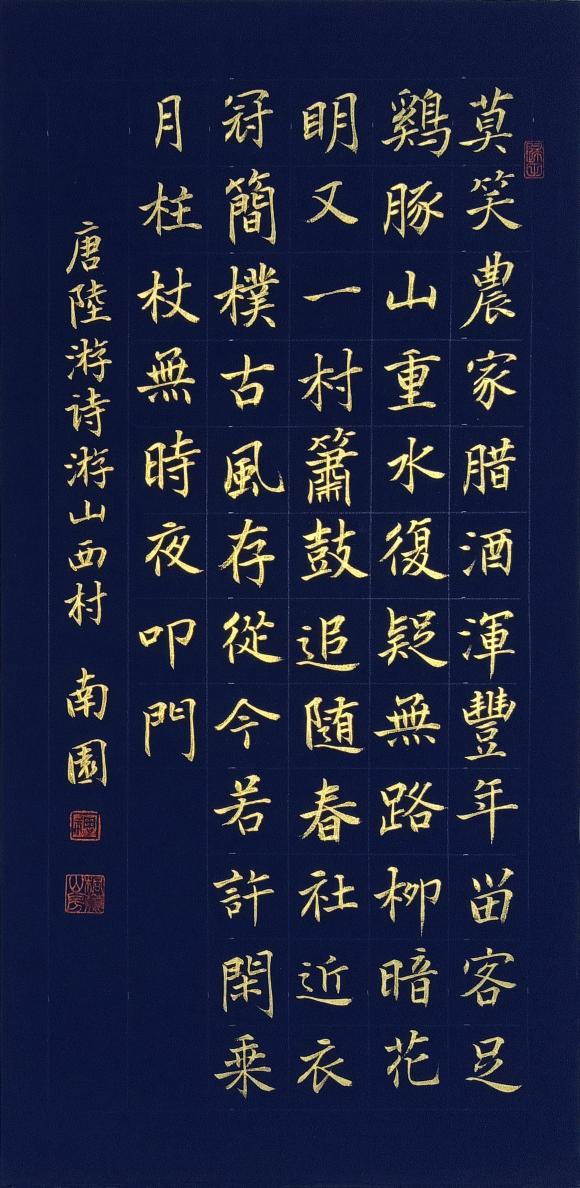 莫笑農家腊酒渾豐年畄客足
鷄豚山重水復疑無路柳暗花
明又一村簫鼓追随春社近衣
冠簡樸古風存從今若許閑乘
月柱杖無時夜叩門
唐陸游詩游山西村 南園